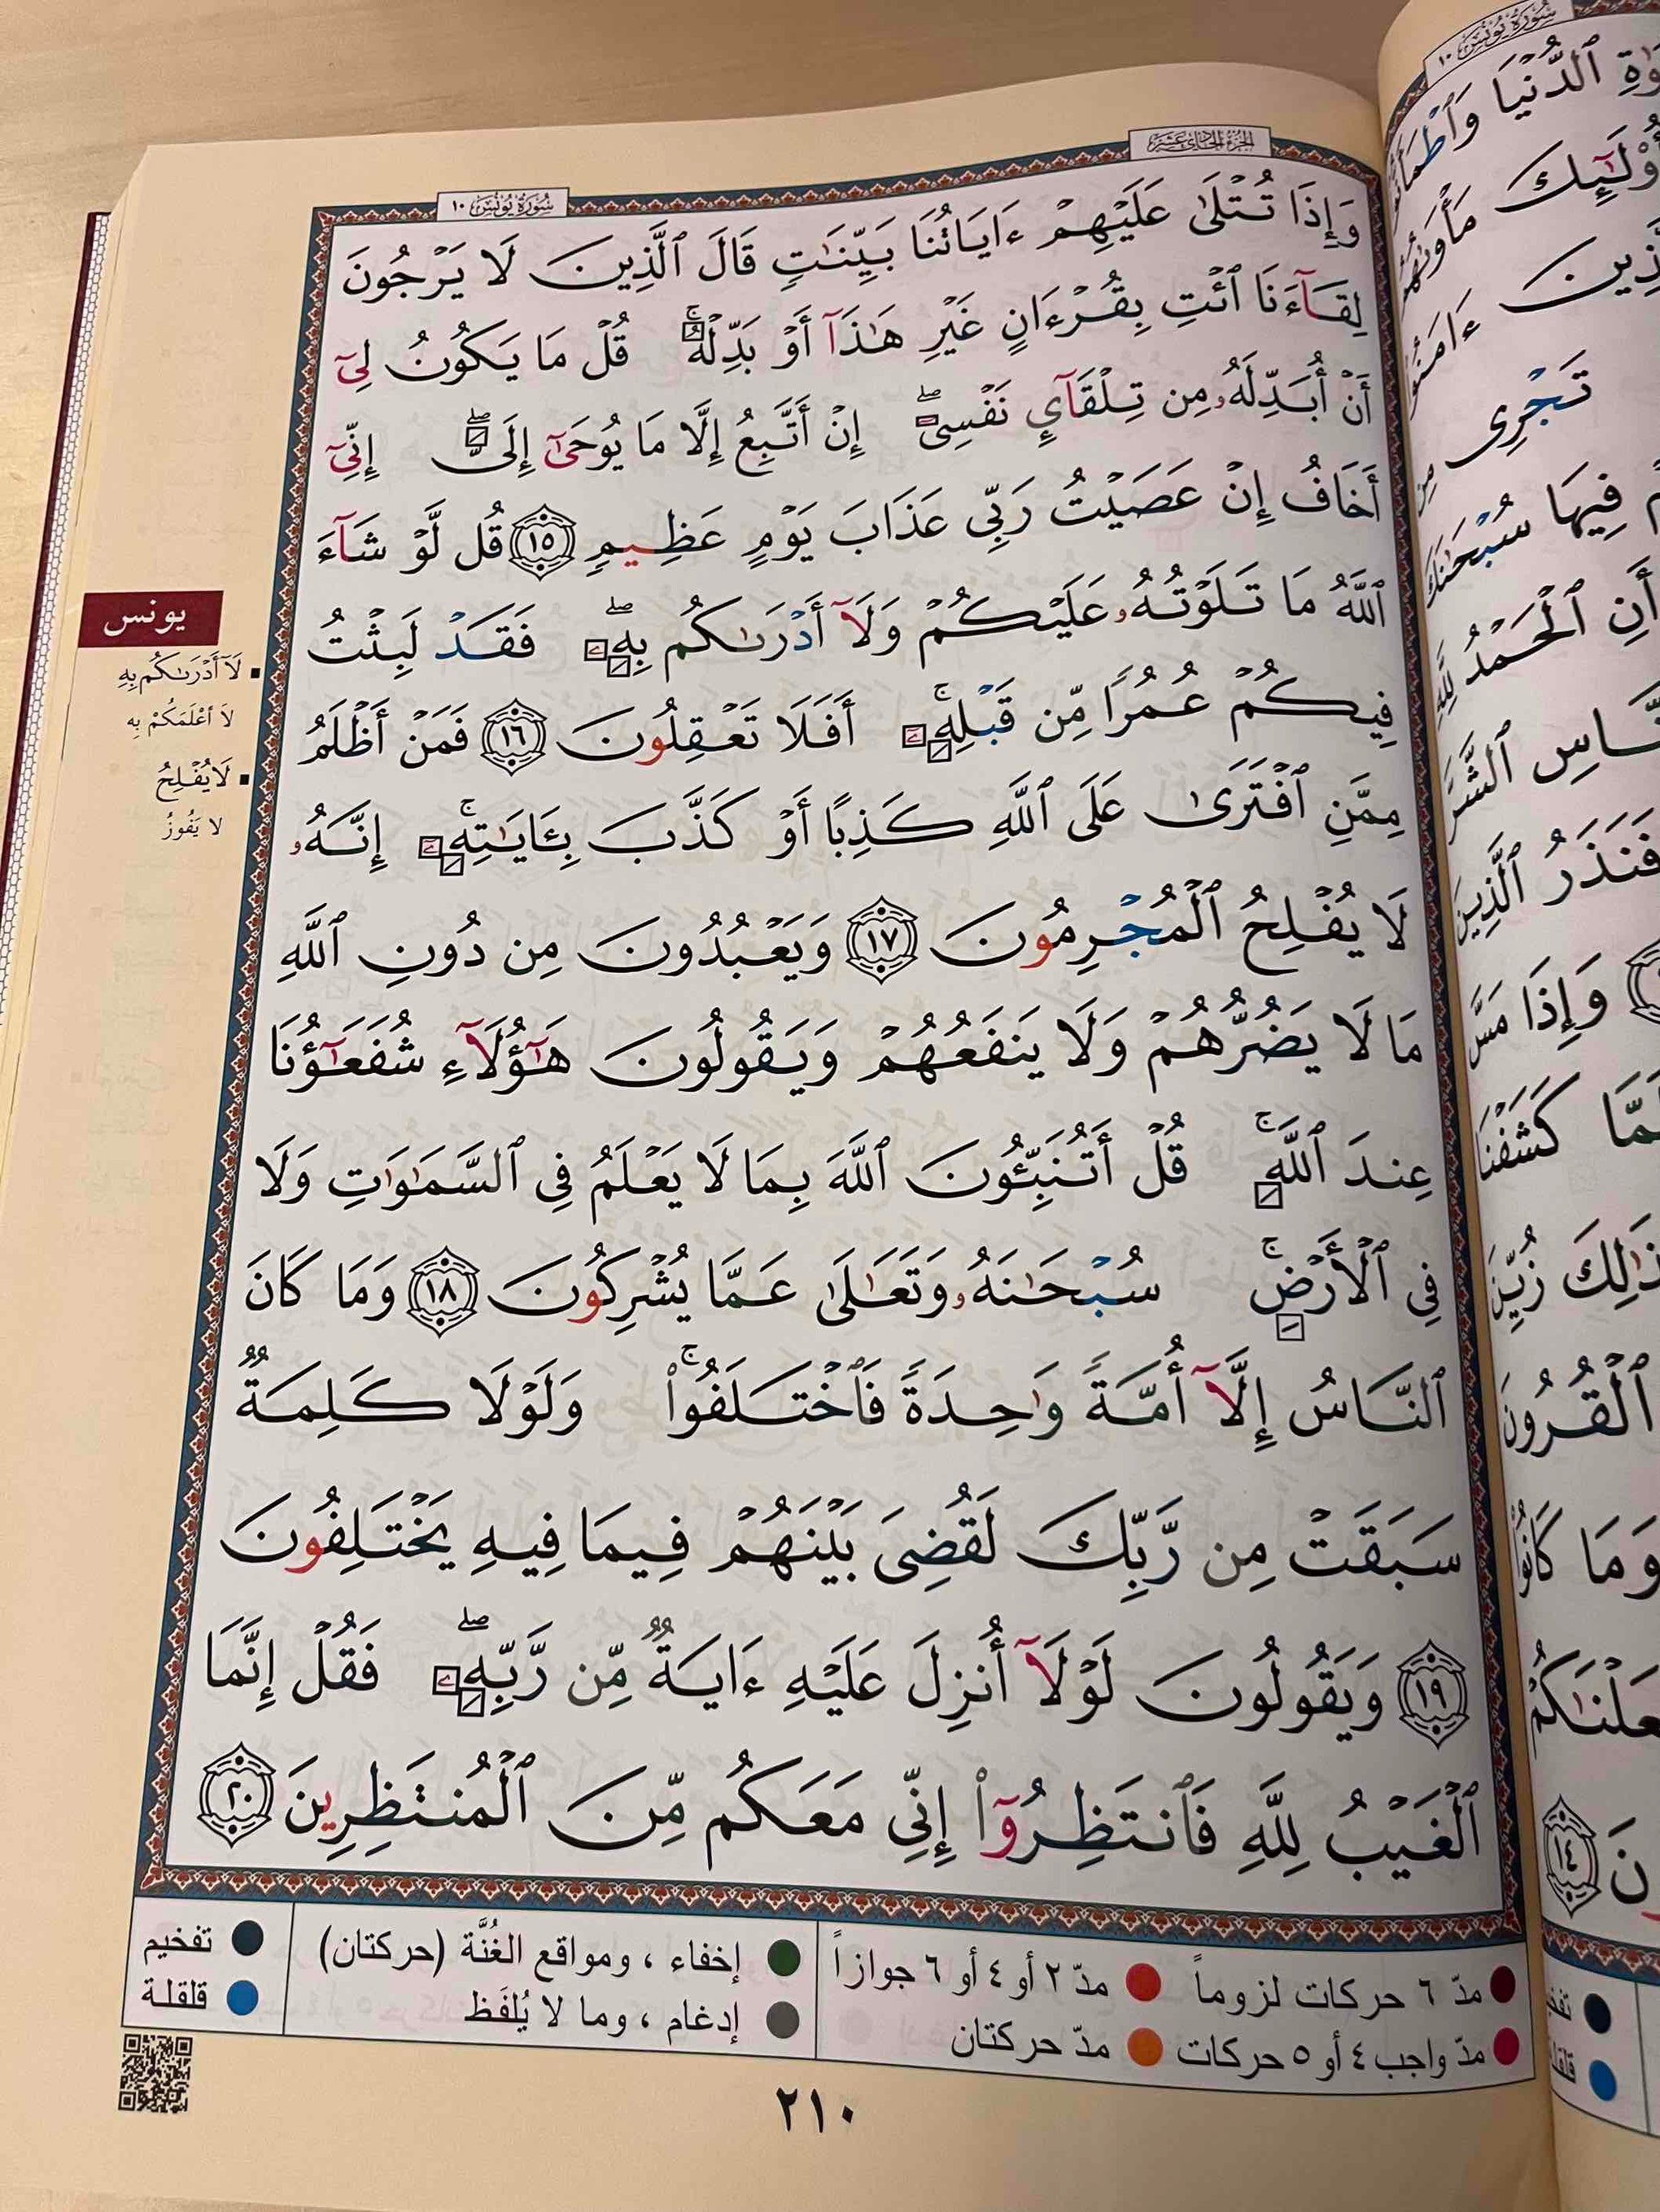 الجزء الحادي عشر
سورة يونس ١٠
وَإِذَا تُتْلَىٰ عَلَيْهِمْ ءَايَاتُنَا بَيِّنَٰتٍ قَالَ ٱلَّذِينَ لَا يَرْجُونَ
لِقَآءَنَا ٱئْتِ بِقُرْءَانٍ غَيْرِ هَٰذَآ أَوْ بَدِّلْهُ ۚ قُلْ مَا يَكُونُ لِىٓ
أَنْ أُبَدِّلَهُۥ مِن تِلْقَآئِ نَفْسِىٓ ۖ إِنْ أَتَّبِعُ إِلَّا مَا يُوحَىٰٓ إِلَىَّ ۖ إِنِّىٓ
أَخَافُ إِنْ عَصَيْتُ رَبِّى عَذَابَ يَوْمٍ عَظِيمٍ ١٥ قُل لَّوْ شَآءَ
ٱللَّهُ مَا تَلَوْتُهُۥ عَلَيْكُمْ وَلَآ أَدْرَىٰكُم بِهِۦ ۖ فَقَدْ لَبِثْتُ
فِيكُمْ عُمُرًا مِّن قَبْلِهِۦٓ ۚ أَفَلَا تَعْقِلُونَ ١٦ فَمَنْ أَظْلَمُ
مِمَّنِ ٱفْتَرَىٰ عَلَى ٱللَّهِ كَذِبًا أَوْ كَذَّبَ بِـَٔايَٰتِهِۦٓ ۚ إِنَّهُۥ
لَا يُفْلِحُ ٱلْمُجْرِمُونَ ١٧ وَيَعْبُدُونَ مِن دُونِ ٱللَّهِ
مَا لَا يَضُرُّهُمْ وَلَا يَنفَعُهُمْ وَيَقُولُونَ هَٰٓؤُلَآءِ شُفَعَٰٓؤُنَا
عِندَ ٱللَّهِ ۚ قُلْ أَتُنَبِّـُٔونَ ٱللَّهَ بِمَا لَا يَعْلَمُ فِى ٱلسَّمَٰوَٰتِ وَلَا
فِى ٱلْأَرْضِ ۚ سُبْحَٰنَهُۥ وَتَعَٰلَىٰ عَمَّا يُشْرِكُونَ ١٨ وَمَا كَانَ
ٱلنَّاسُ إِلَّآ أُمَّةً وَٰحِدَةً فَٱخْتَلَفُوا۟ ۚ وَلَوْلَا كَلِمَةٌ
سَبَقَتْ مِن رَّبِّكَ لَقُضِىَ بَيْنَهُمْ فِيمَا فِيهِ يَخْتَلِفُونَ
١٩ وَيَقُولُونَ لَوْلَآ أُنزِلَ عَلَيْهِ ءَايَةٌ مِّن رَّبِّهِۦ ۖ فَقُلْ إِنَّمَا
ٱلْغَيْبُ لِلَّهِ فَٱنتَظِرُوٓا۟ إِنِّى مَعَكُم مِّنَ ٱلْمُنتَظِرِينَ ٢٠
يونس
لَآ أَدْرَىٰكُم بِهِ
لَا أَعْلَمَكُمْ بِهِ
لَا يُفْلِحُ
لا يَفُوزُ
مدّ ٦ حركات لزوماً مدّ ٢ أو ٤ أو ٦ جوازاً
مدّ واجب ٤ أو ٥ حركات مدّ حركتان
إخفاء ، ومواقع الغُنَّة (حركتان)
إدغام ، وما لا يُلفَظ
تفخيم
قلقلة
٢١٠
سورة يونس ١٠
ٱلدُّنْيَا
أُو۟لَٰٓئِكَ
ءَامَنُوا۟
تَجْرِى
فِيهَا سُبْحَٰنَكَ
أَنِ ٱلْحَمْدُ لِلَّهِ
فَنَذَرُ ٱلَّذِينَ
وَإِذَا مَسَّ
كَشَفْنَا
زُيِّنَ
ٱلْقُرُونَ
وَمَا كَانُوا۟
١٤